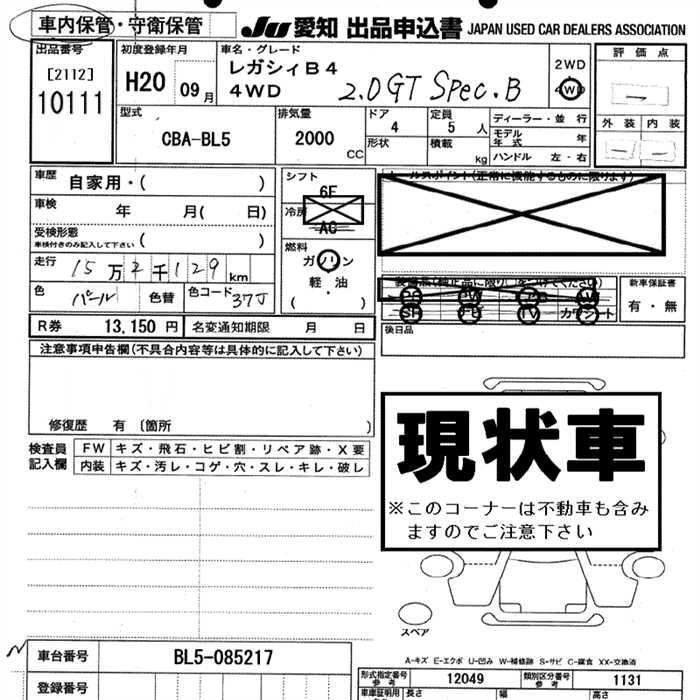 車内保管・守衛保管 JU 愛知 出品申込書 JAPAN USED CAR DEALERS ASSOCIATION
出品番号 初度登録年月 車名・グレード 評価点
[2112] レガシィB4 2WD
10111 H20 09月 4WD 2.0GT Spec.B 4WD
型式 排気量 ドア 定員 ディーラー・並行 外装 内装
CBA-BL5 2000 CC 4 5人 モデル年式 年
形状 積載 kg ハンドル 左・右
車歴 自家用・( ) シフト 6F セールスポイント(正常に機能するものに限ります)
車検 年 月( 日) 冷房 AC
受検形態 ( )
車検付きのみ記入して下さい
燃料 ガソリン
走行 15万2千129km 軽・油
装備品(純正品に限り○をつけてください) 新車保証書
色 パール 色替 色コード 37J ( ) 有・無
SR TV カワシート
R券 13,150円 名変通知期限 月 日 後日品
注意事項申告欄(不具合内容等は具体的に記入して下さい)
修復歴 有 〔箇所 〕
検査員記入欄 FW キズ・飛石・ヒビ割・リペア跡・X要
内装 キズ・汚レ・コゲ・穴・スレ・キレ・破レ
現状車
※このコーナーは不動車も含み
ますのでご注意下さい
スペア
A-キズ E-エクボ U-凹み W-補修跡 S-サビ C-腐食 XX-交換済
車台番号 BL5-085217
型式指定番号 参考 12049 類別区分番号 参考 1131
登録番号 車庫証明用 参考 長さ 幅 高さ